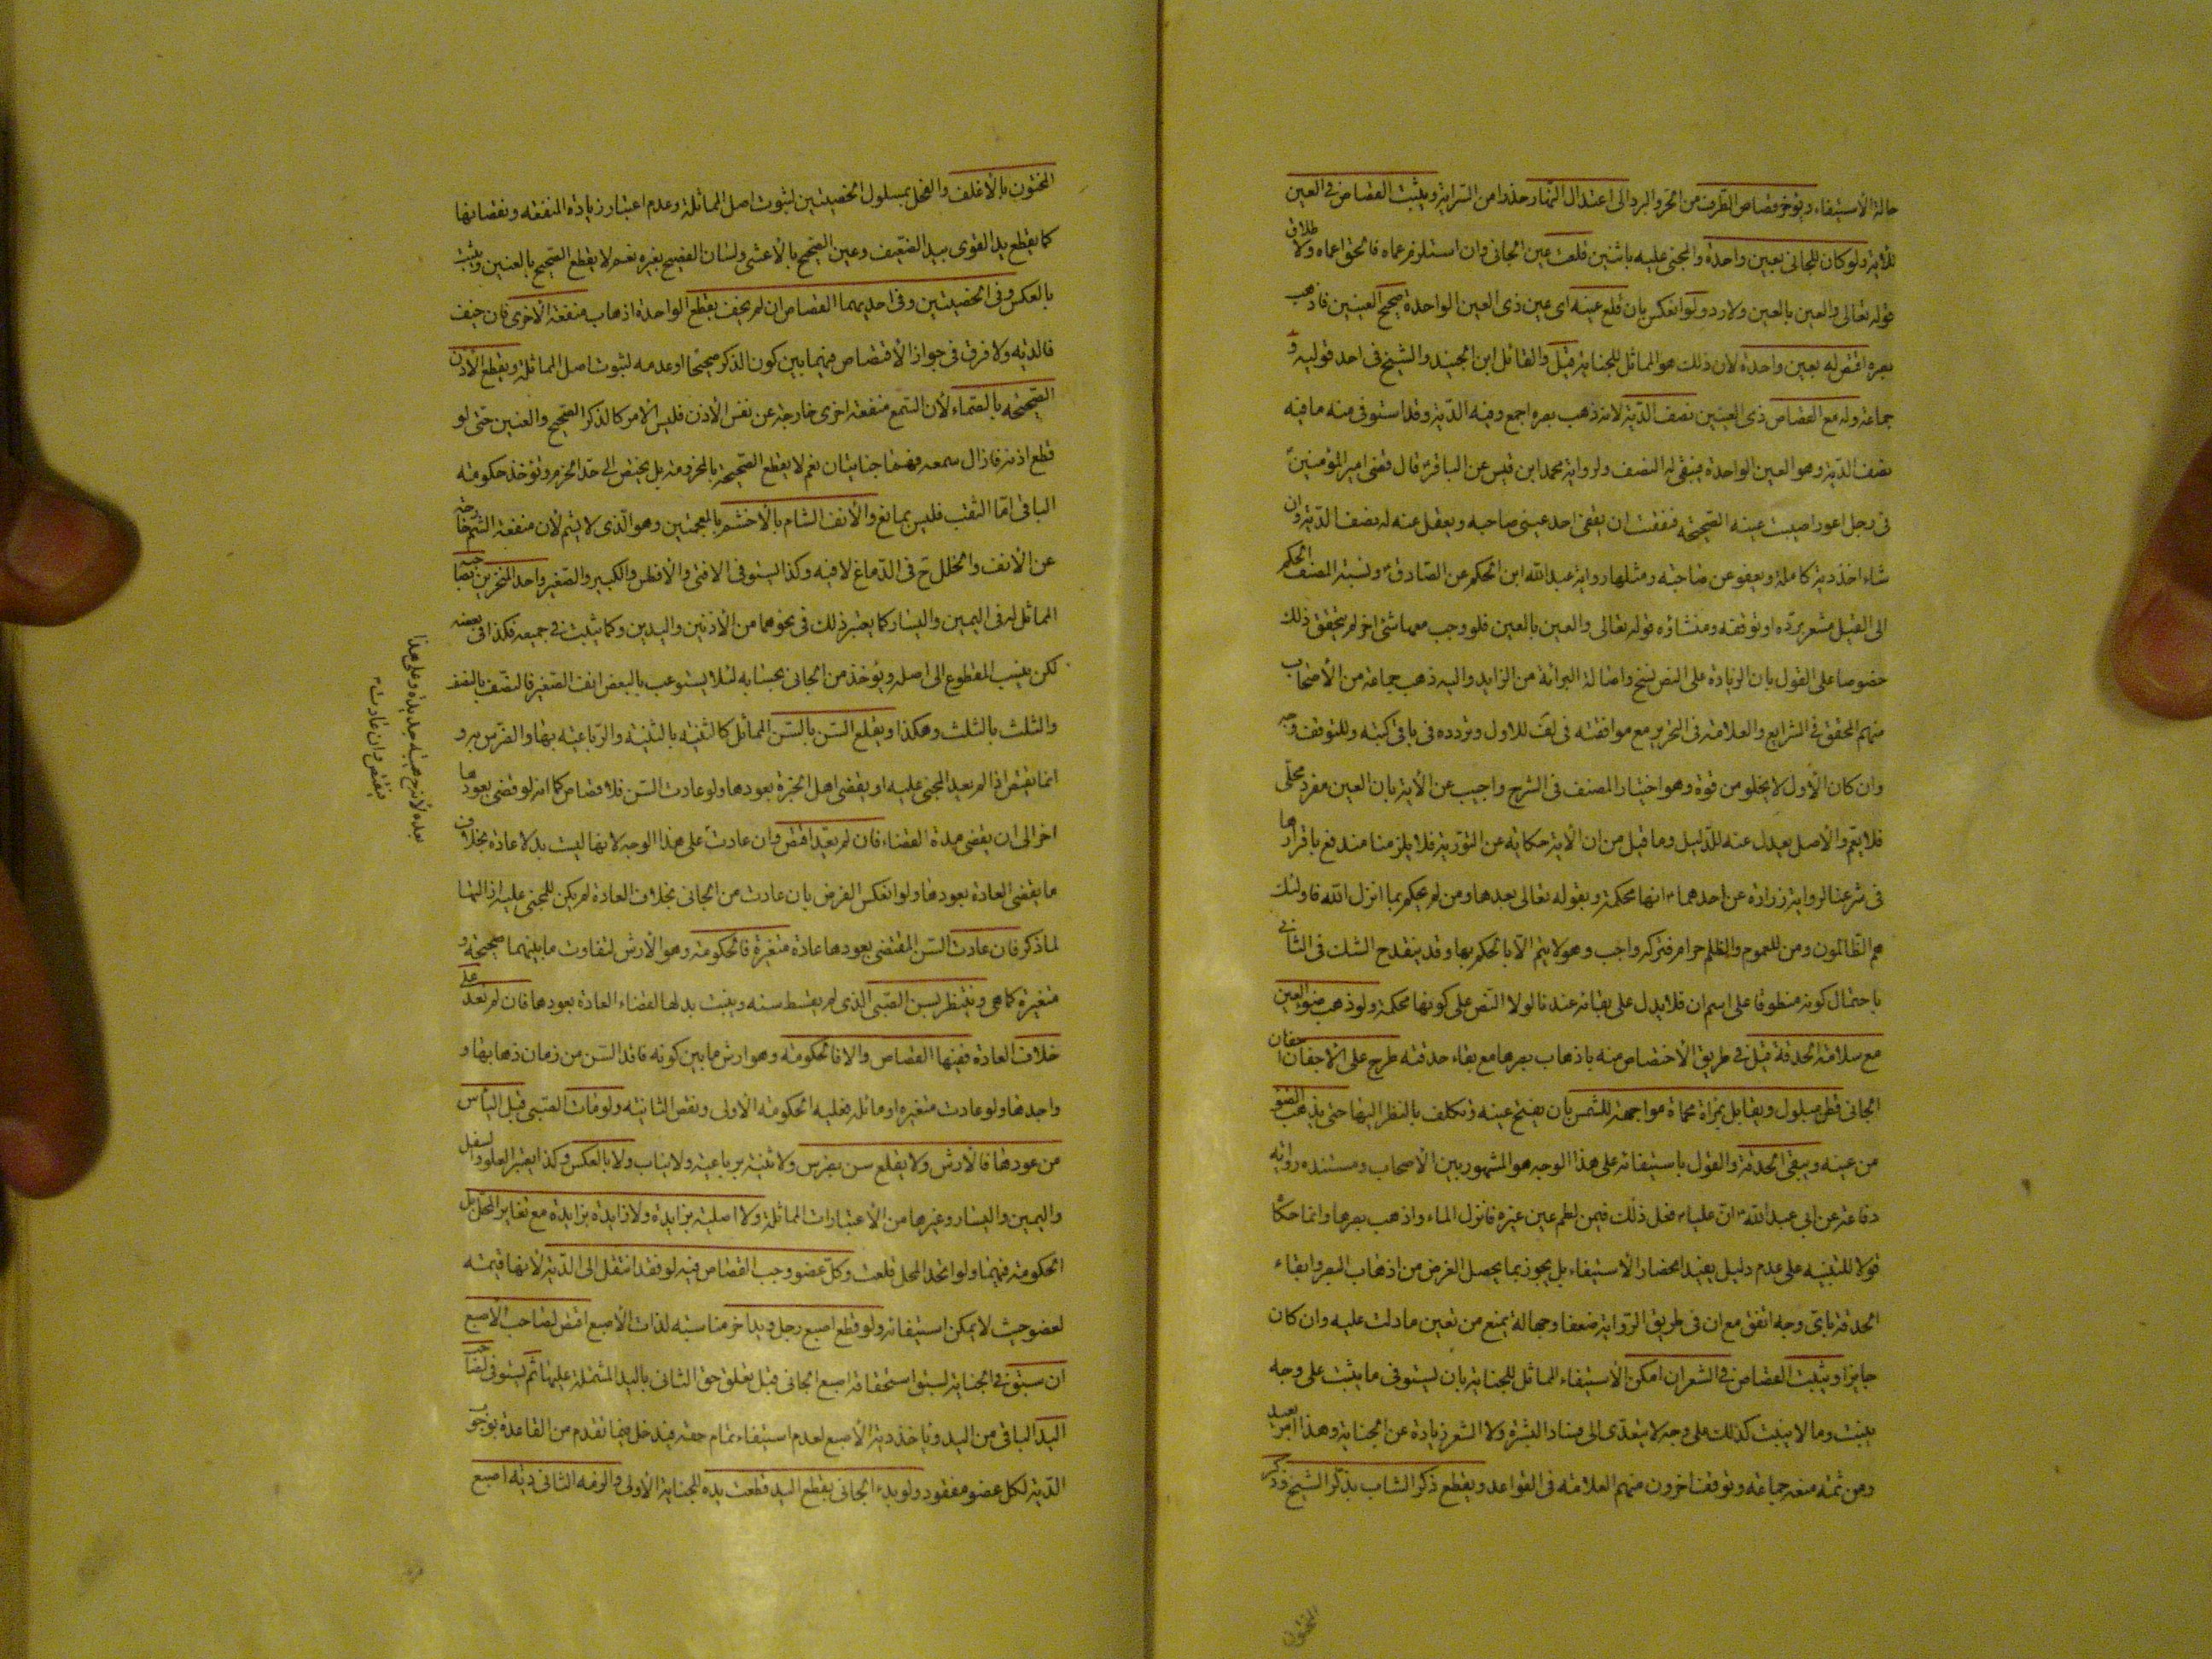 حالة الاستيفاء ويؤخر قصاص الطرف من الحر والبرد الى اعتدال النهار حذرا من السراية ويثبت القصاص في العين
للاية ولو كان للجاني بعين واحدة والمجني عليه باثنين قلعت عين الجاني وان استلزم عماه فالحق اعماه ولاطلاق
قوله تعالى والعين بالعين ولا رد ولو انعكس بان قلع عينه اى عين ذى العين الواحدة صحيح العينين فاذهب
بصره اقتص له بعين واحدة لان ذلك هو المماثل للجناية قيل والقائل ابن الجنيد والشيخ فى احد قوليه و
جماعة وله مع القصاص ذى العينين نصف الدية لانه ذهب بصره اجمع وفيه الدية وقد استوفى منه ما فيه
نصف الدية وهو العين الواحدة فيبقى له النصف ولرواية محمد ابن قيس عن الباقر ع قال قضى امير المؤمنين ع
فى رجل اعور اصيبت عينه الصحيحة ففقئت ان يفقى احد عينى صاحبه ويعقل عنه له نصف الدية وان
شاء اخذ دية كاملة ويعفو عن صاحبه ومثلها رواية عبد الله ابن الحكم عن الصادق ع ونسبة المصنف الحكم
الى القيل مشعر برده او توقفه ومنشاؤه قوله تعالى والعين بالعين فلو وجب معها شئ اخر لم يتحقق ذلك
خصوصا على القول بان الزيادة على النص نسخ واصالة البرائة من الزايد واليه ذهب جماعة من الأصحاب
منهم المحقق فى الشرايع والعلامة فى التحرير مع موافقته فى لف للاول وتردده فى باقى كتبه وللتوقف وجه
وان كان الأول لا يخلو من قوة وهو اختيار المصنف فى الشرح واجيب عن الاية بان العين مفرد محلى
فلا يعم والاصل يعدل عنه للدليل وما قيل من ان الاية حكاية عن التورية فلا يلزمنا مندفع باقرارها
فى شرعنا لرواية زرارة عن احدهما ع انها محكمة وبقوله تعالى بعدها ومن لم يحكم بما انزل الله فاولئك
هم الظالمون ومن للعموم والظلم حرام فتركه واجب وهو لا يتم الا بالحكم بها وقد ينقدح الشك فى الثانى
باحتمال كونه منطوقا على اسم ان فلا يدل على بقائه عندنا لولا النص على كونها محكمة ولو ذهب ضوء العين
مع سلامة الحدقة قيل فى طريق الاختصاص منه باذهاب بصرها مع بقاء حدقته طرح على الاجفان اجفان
الجانى قطن مبلول ويقابل بمراة محماة مواجهة للشمس بان يفتح عينه وتكلف بالنظر اليها حتى يذهب الضوء
من عينه ويبقى الحدقة والقول باستيفائه على هذا الوجه هو المشهور بين الاصحاب ومستنده رواية
رفاعة عن ابى عبد الله ع ان عليا ع فعل ذلك فيمن لطم عين غيره فانزل الماء واذهب بصرها وانما حكا
قولا للتنبيه على عدم دليل يفيد انحصار الاستيفاء بل يجوز بما يحصل الغرض من اذهاب البصر وابقاء
الحدقة باى وجه اتفق مع ان فى طريق الرواية ضعفا وجهالة يمنع من تعين ما دلت عليه وان كان
جايزا ويثبت القصاص فى الشعر ان امكن الاستيفاء المماثل للجناية بان يستوفى ما ينبت على وجه
ينبت وما لا ينبت كذلك على وجه لا يتعدى الى فساد البشرة ولا الشعر زيادة عن الجناية وهذا امر بعيد
ومن ثمة منعه جماعة وتوقف اخرون منهم العلامة فى القواعد ويقطع ذكر الشاب بذكر الشيخ وذكر
المختون
المختون بالأغلف والفحل بمسلول الخصيتين لثبوت اصل المماثلة وعدم اعتبار زيادة المنفعة ونقصانها
كما يقطع يد القوى بيد الضعيف وعين الصحيح بالأعشى ولسان الفصيح بغيره نعم لا يقطع الصحيح بالعنين ويثبت
بالعكس وفى الخصيتين وفى احديهما القصاص ان لم يخف بقطع الواحدة اذهاب منفعة الأخرى فان خيف
فالدية ولا فرق فى جواز الاقتصاص فيهما بين كون الذكر صحيحا او عدمه لثبوت اصل المماثلة ويقطع الأذن
الصحيحة بالصماء لأن السمع منفعة اخرى خارجة عن نفس الأذن فليس الأمر كالذكر الصحيح والعنين حتى لو
قطع اذنه فازال سمعه فهما جنايتان نعم لا يقطع الصحيحة بالمخزومة بل يقتص الى حد الخرم وتؤخذ حكومة
الباقى اما الثقب فليس بمانع والأنف الشام بالأخشم بالمعجمتين وهو الذى لا يشم لأن منفعة الشم خارجة
عن الأنف والخلل ح فى الدماغ لا فيه وكذا يستوفى الأقنى والأفطس والكبير والصغير واحد المنخرين بصاحبه
المماثل له فى اليمين واليسار كما يعتبر ذلك فى نحوهما من الأذنين واليدين وكما يثبت فى جميعه فكذا فى بعضه
لكن ينسب المقطوع الى اصله ويؤخذ من الجانى بحسابه لئلا يستوعب بالبعض انف الصغير فالنصف بالنصف
والثلث بالثلث وهكذا ويقلع السن بالسن المماثل كالثنية بالثنية والرباعية بها والضرس به و
انما يقتص اذا لم يعد المجنى عليه او يقضى اهل الخبرة بعودها ولو عادت السن فلا قصاص كما انه لو قضى بعودها
اخر الى ان يقضى مدة القضاء فان لم يعد اقتص وان عادت على هذا الوجه لانها ليست بدلا عادة بخلاف
ما يقضى العادة بعودها ولو انعكس الفرض بان عادت من الجانى بخلاف العادة لم يكن للمجنى عليه ازالتها
لما ذكر فان عادت السن المقتضى بعودها عادة متغيرة فالحكومة وهو الأرش لتفاوت ما بينهما صحيحة و
متغيرة كما هى وينتظر بسن الصبى الذى لم يسقط سنه وينبت بدلها لقضاء العادة بعودها فان لم تعد على
خلاف العادة ففيها القصاص والا فالحكومة وهو ارش ما بين كونه فاقد السن من زمان ذهابها و
واجدها ولو عادت متغيرة او مائلة فعليه الحكومة الأولى ونقص الثانية ولو مات الصبى قبل اليأس
من عودها فالأرش ولا يقلع سن بضرس ولا ثنية برباعية ولا بناب ولا بالعكس وكذا يعتبر العلو والسفل
واليمين واليسار وغيرها من الأعتبارات المماثلة ولا اصلية بزايدة ولا زايدة بزايدة مع تغاير المحل بل
الحكومة فيهما ولو اتحد المحل قلعت وكل عضو وجب القصاص فيه لو فقد انتقل الى الدية لأنها قيمة
لعضو حيث لا يمكن استيفائه ولو قطع اصبع رجل ويد اخر مناسبة لذات الأصبع اقتص لصاحب الأصبع
ان سبق فى الجناية لسبق استحقاقه اصبع الجانى قبل تعلق حق الثانى باليد المشتملة عليها ثم يستوفى لصاحب
اليد الباقى من اليد ويأخذ دية الأصبع لعدم استيفاء تمام حقه فيدخل فيما تقدم من القاعدة بوجوب
الدية لكل عضو مفقود ولو بدء الجانى بقطع اليد قطعت يده للجناية الأولى والزمه الثانى دية اصبع
بعده لأنه ح هبة جديدة وعلى هذا
فيقتص وان عادت